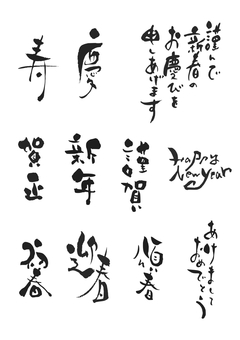 謹んで
新春の
お慶びを
申しあげます
慶
寿
Happy
New Year
謹賀
新年
賀正
あけまして
おめでとう
順春
迎春
初春